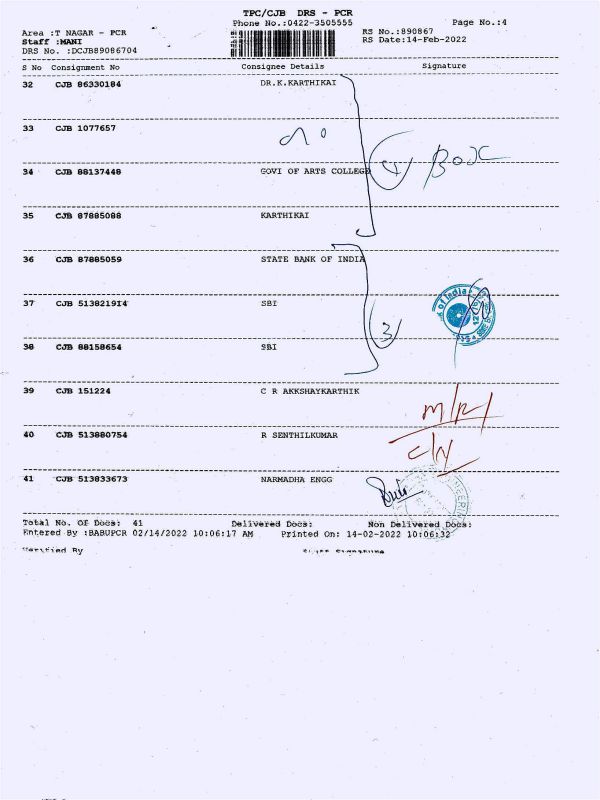 TPC/CJB DRS - PCR
Phone No.:0422-3505555
Page No.:4
Area :T NAGAR - PCR
RS No.:890867
Staff :MANI
RS Date:14-Feb-2022
DRS No. :DCJB89086704
S No Consignment No Consignee Details Signature
32 CJB 86330184 DR.K.KARTHIKAI
33 CJB 1077657
34 CJB 88137448 GOVI OF ARTS COLLEGE
4 BOX
35 CJB 87885088 KARTHIKAI
36 CJB 87885059 STATE BANK OF INDIA
37 CJB 513821914 SBI
3
38 CJB 88158654 SBI
39 CJB 151224 C R AKKSHAYKARTHIK
40 CJB 513880754 R SENTHILKUMAR
41 CJB 513833673 NARMADHA ENGG
Total No. Of Docs: 41 Delivered Docs: Non Delivered Docs:
Entered By :BABUPCR 02/14/2022 10:06:17 AM Printed On: 14-02-2022 10:06:32
Verified By